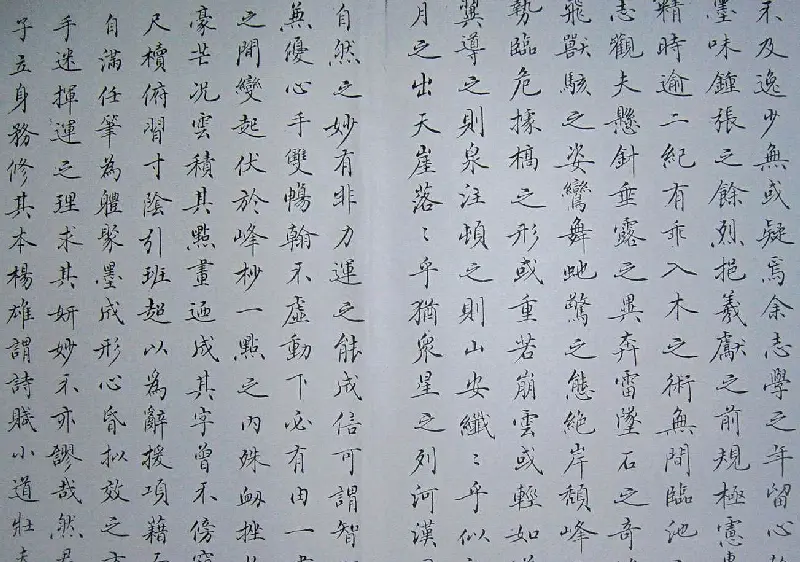 末及逸少無或疑焉余志學之年留心
墨味鍾張之餘烈挹羲獻之前規極慮
精時逾二紀有乖入木之術無間臨池
志觀夫懸針垂露之異奔雷墜石之奇
飛獸駭之姿鸞舞虵驚之態絶岸頹峰
勢臨危據槁之形或重若崩雲或輕如
翼導之則泉注頓之則山安纖〻乎似
月之出天崖落〻乎猶衆星之列河漢
自然之妙有非力運之能成信可謂智
無優心手雙暢翰不虛動下必有由一
之間變起伏於峰杪一點之內殊衄挫
豪芒況雲積其點畫迺成其字曾不傍
尺櫝俯習寸陰引班超以為辭援項藉
自滿任筆為體聚墨成形心昏擬效之
手迷揮運之理求其妍妙不亦謬哉然
子立身務修其本楊雄謂詩賦小道壯